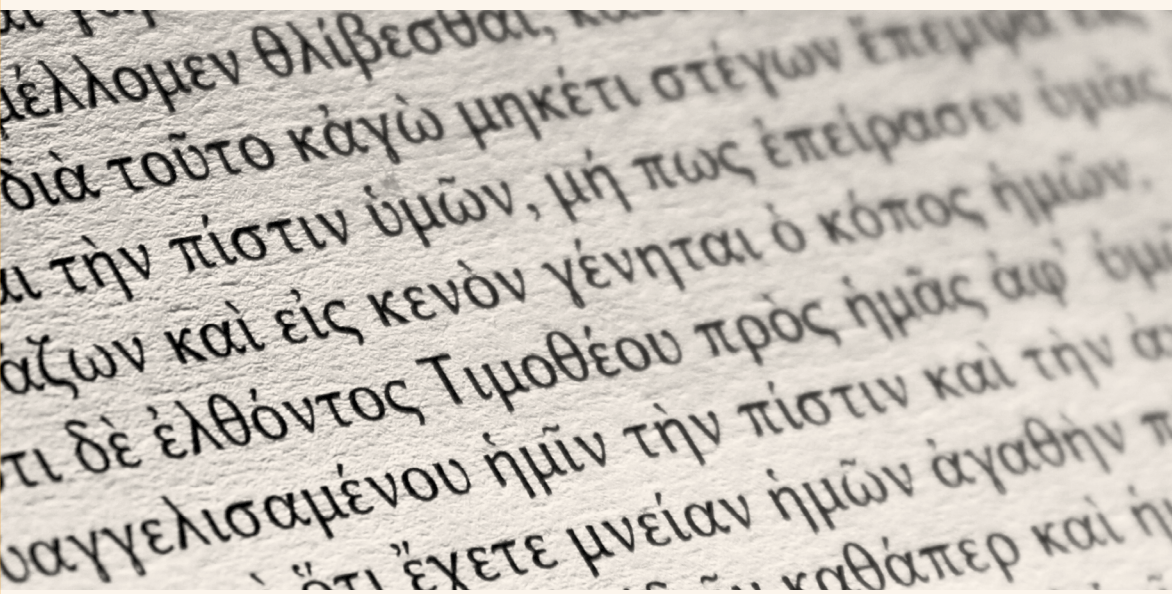 μέλλομεν θλίβεσθαι,
διὰ τοῦτο κἀγὼ μηκέτι στέγων ἔπεμψα εἰς
αι τὴν πίστιν ὑμῶν, μή πως ἐπείρασεν ὑμᾶς
άζων καὶ εἰς κενὸν γένηται ὁ κόπος ἡμῶν.
τι δὲ ἐλθόντος Τιμοθέου πρὸς ἡμᾶς ἀφ᾽ ὑμ
υαγγελισαμένου ἡμῖν τὴν πίστιν καὶ τὴν ἀ
ὅτι ἔχετε μνείαν ἡμῶν ἀγαθὴν π
καθάπερ καὶ ἡμ